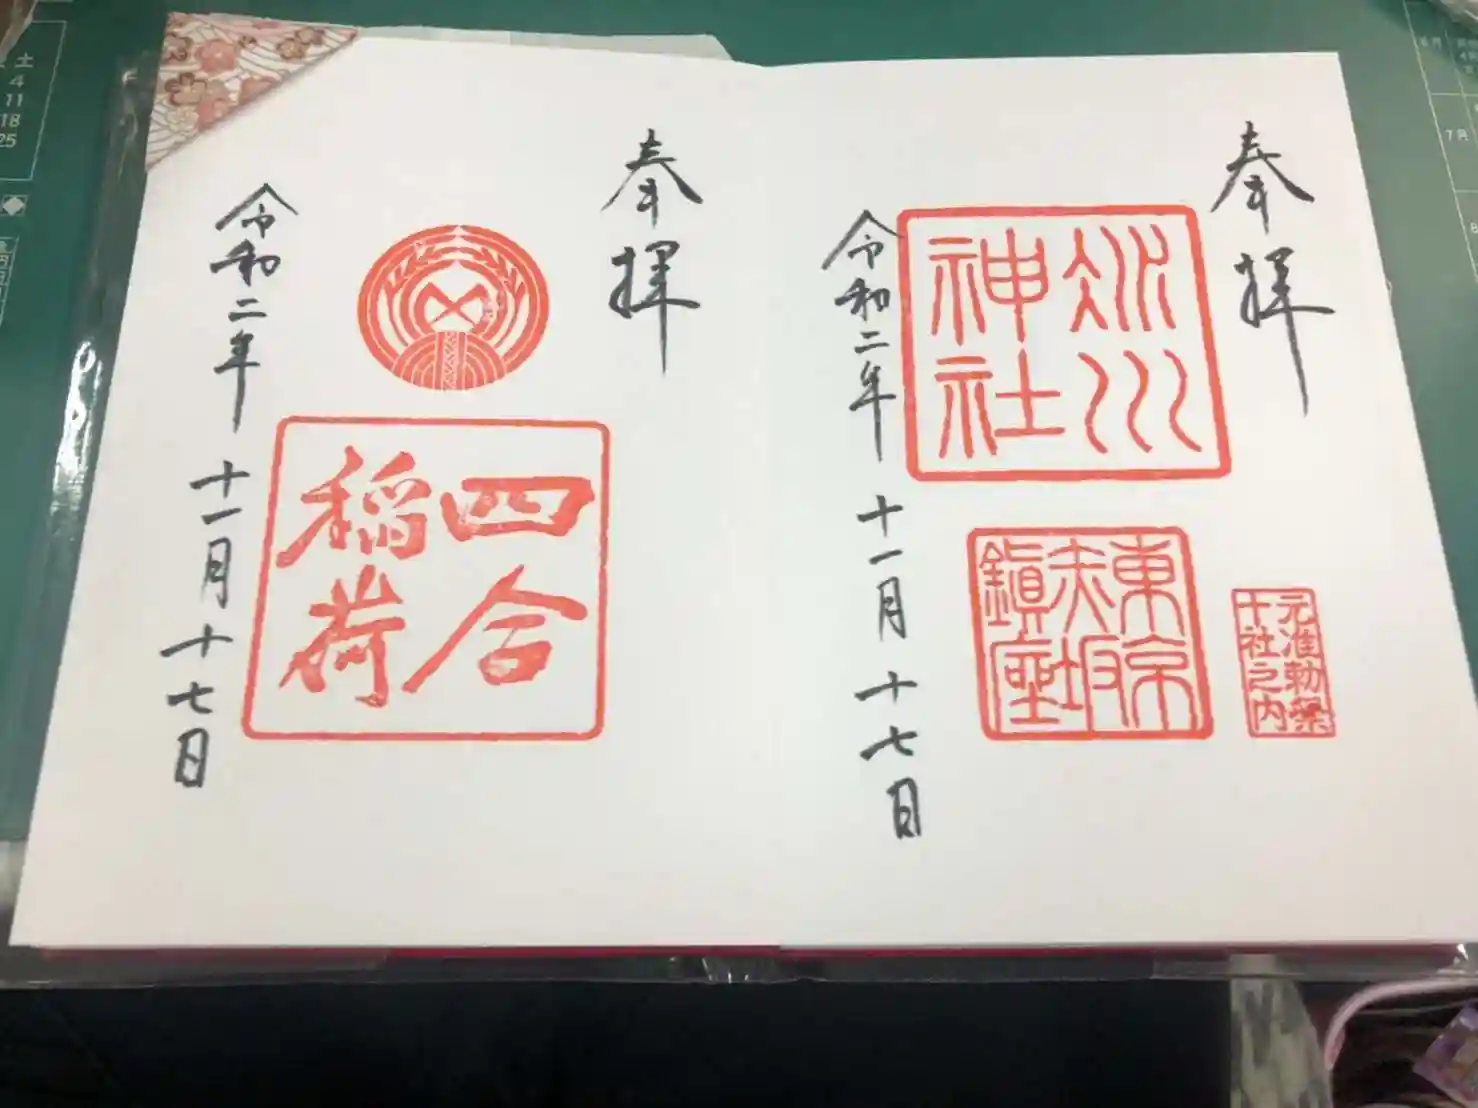 奉拝
氷川
神社
東京
赤坂
鎮座
元准勅祭
十社之内
令和二年 十一月 十七日
奉拝
四合
稲荷
令和二年 十一月 十七日
土
4
11
18
25
6月
7月
8